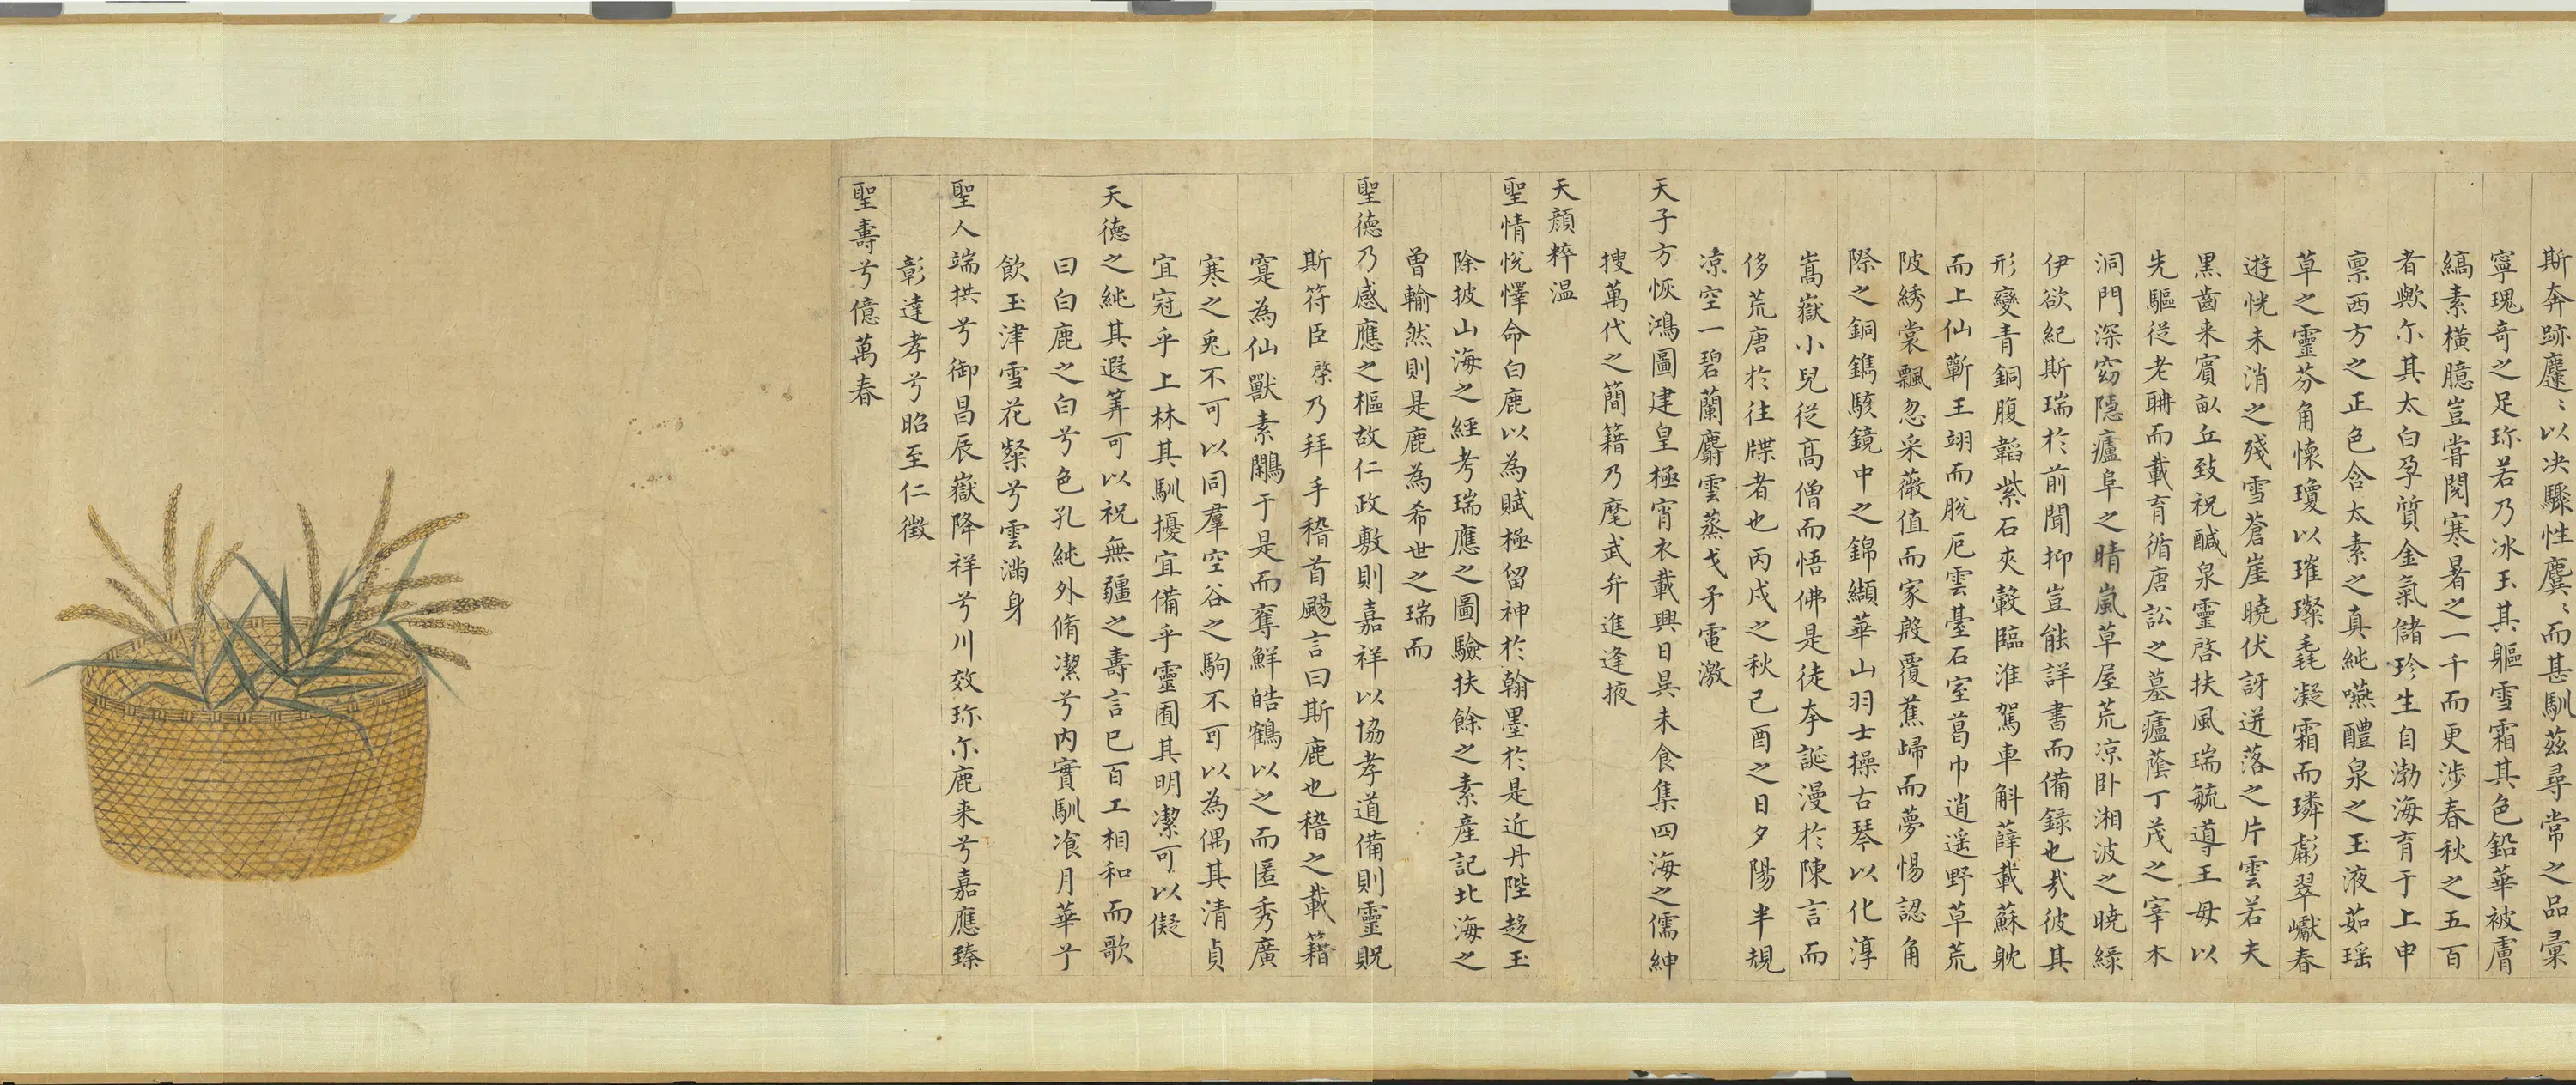 斯奔跡麌〻以决驟性麌〻而甚馴茲尋常之品彙
寧瑰奇之足珎若乃冰玉其軀雪霜其色鉛華被膚
縞素橫臆豈嘗閱寒暑之一千而更涉春秋之五百
者歟尓其太白孕質金氣儲珍生自渤海育于上申
禀西方之正色含太素之真純嚥醴泉之玉液茹瑶
草之靈芬角懷瓊以璀璨毛凝霜而璘彪翠巘春
遊恍未消之殘雪蒼崖曉伏訝迸落之片雲若夫
黒齒来賔畝丘致祝醎泉靈啓扶風瑞毓導王母以
先驅從老聃而載育循唐訟之墓廬蔭丁茂之宰木
洞門深窈隠廬阜之晴嵐草屋荒凉卧湘波之曉緑
伊欲紀斯瑞於前聞抑豈能詳書而備録也㢤彼其
形變青銅腹韜紫石夾轂臨淮駕車斛薛載蘇躭
而上仙蘄王翊而脫厄雲臺石室菖巾逍遥野草荒
陂綉裳飄忽采薇值而家殷覆蕉歸而夢惕認角
際之銅鐫駭鏡中之錦纈華山羽士操古琴以化淳
嵩嶽小兒從高僧而悟佛是徒夲誕漫於陳言而
侈荒唐於往牒者也丙戌之秋己酉之日夕陽半規
凉空一碧蘭麝雲蒸戈矛電激
天子方恢鴻圖建皇極宵衣載興日昃未食集四海之儒紳
搜萬代之簡籍乃麾武弁進逢掖
天顔粹温
聖情悅懌命白鹿以為賦極留神於翰墨於是近丹陛趍玉
除披山海之經考瑞應之圖驗扶餘之素產記北海之
曽輸然則是鹿為希世之瑞而
聖德乃感應之樞故仁政敷則嘉祥以協孝道備則靈貺
斯符臣棨乃拜手稽首颺言曰斯鹿也稽之載籍
寔為仙獸素鷴于是而奪鮮皓鶴以之而匿秀廣
寒之兎不可以同羣空谷之駒不可以為偶其清貞
宜冠乎上林其馴擾宜備乎靈囿其明潔可以儗
天德之純其遐筭可以祝無疆之壽言已百工相和而歌
曰白鹿之白兮色孔純外脩潔兮内實馴飡月華兮
飲玉津雪花粲兮雲滿身
聖人端拱兮御昌辰嶽降祥兮川效珎尓鹿来兮嘉應臻
彰達孝兮昭至仁徵
聖壽兮億萬春